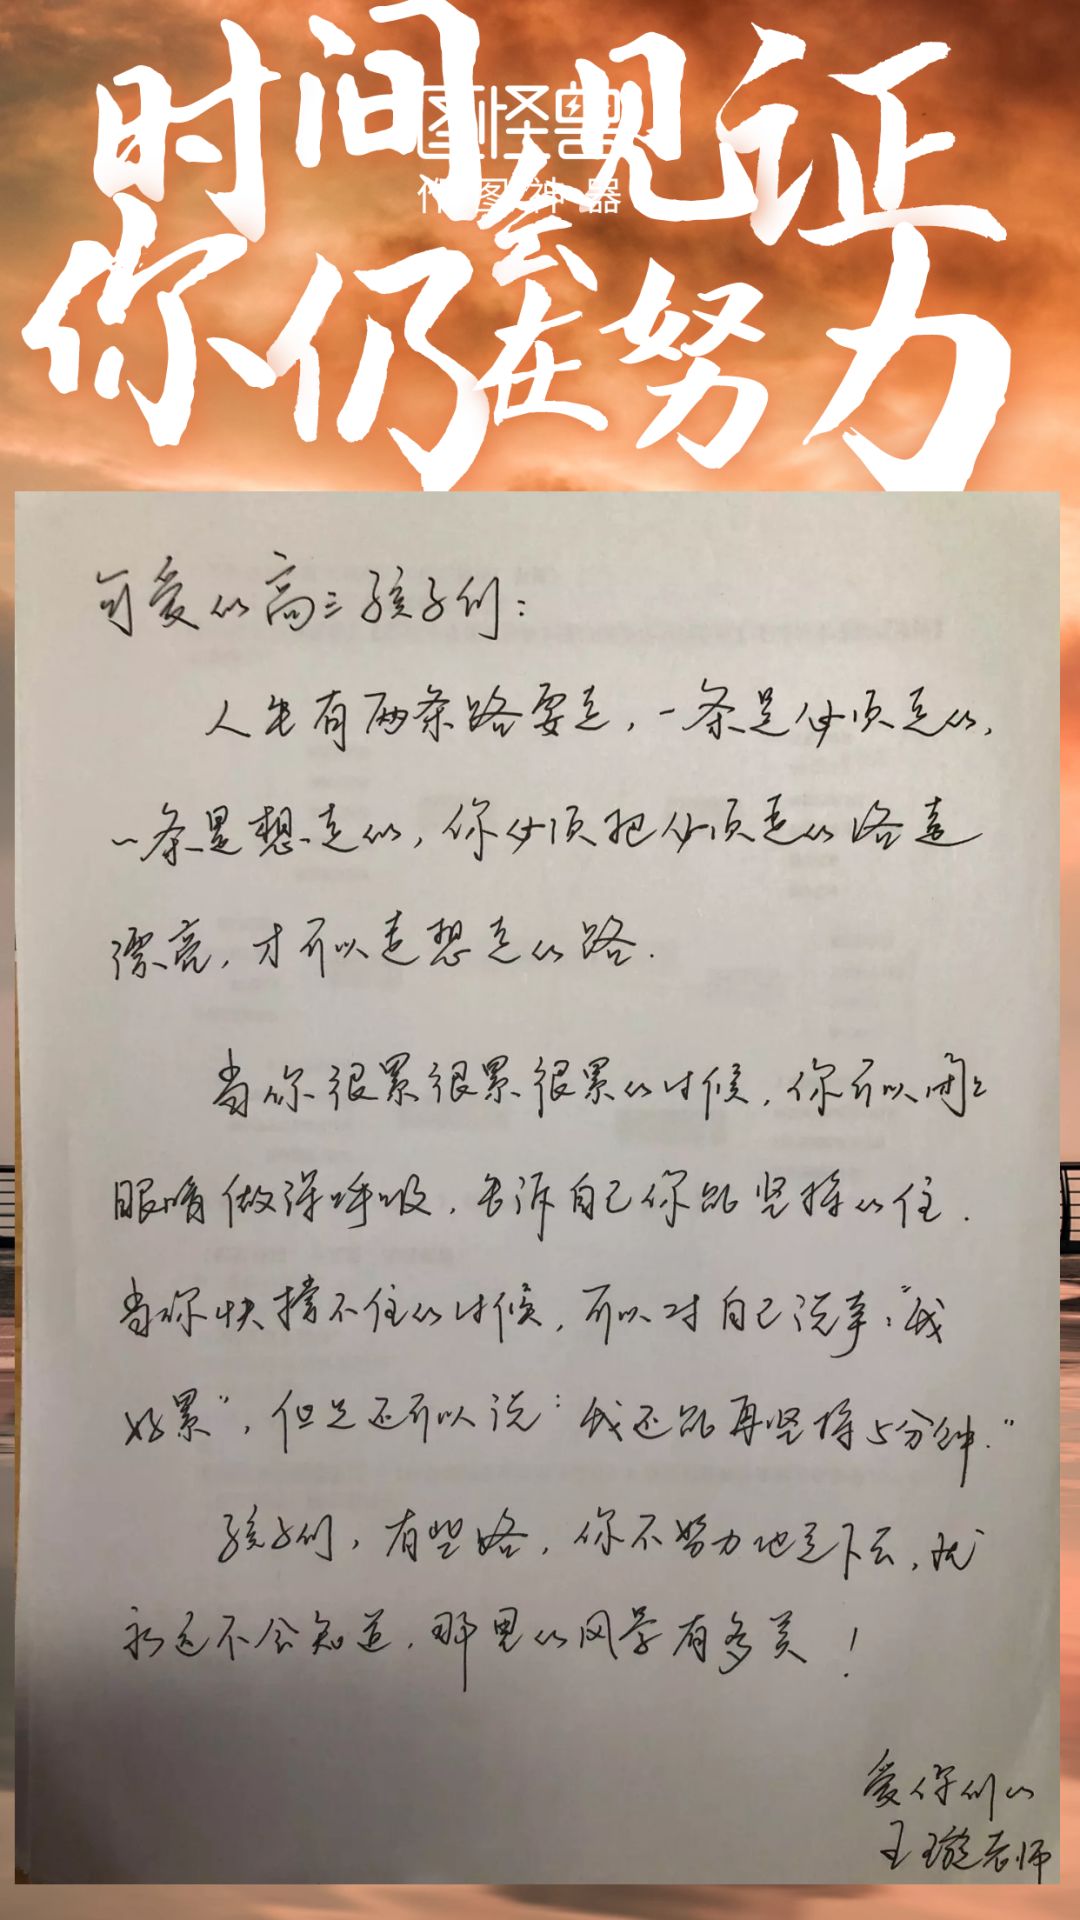 时间会见证
你仍在努力
图怪兽
作图神器
可爱的高三孩子们：
人生有两条路要走，一条是必须走的，
一条是想走的，你必须把必须走的路走
漂亮，才可以走想走的路．
当你很累很累很累的时候，你可以闭上
眼睛做深呼吸，告诉自己你能坚持的住．
当你快撑不住的时候，可以对自己说声：“我
好累”，但是还可以说：“我还能再坚持5分钟．”
孩子们，有些路，你不努力地走下去，就
永远不会知道，那里的风景有多美！
爱你们的
王璇老师